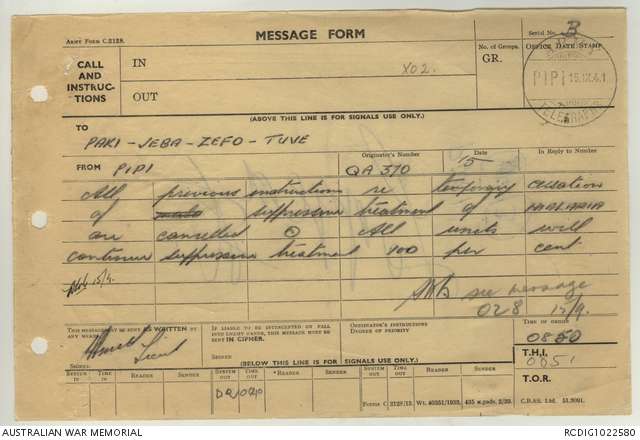 ARMY FORM C.2128.
MESSAGE FORM
Serial No. B
CALL AND INSTRUCTIONS
IN
X02.
No. of Groups.
GR.
OFFICE DATE STAMP
PIPI 15.IX.41
OUT
(ABOVE THIS LINE IS FOR SIGNALS USE ONLY.)
TO
PAKI - JEBA - ZEFO - TUVE
FROM PIPI
Originator's Number
QA 370
Date
15
In Reply to Number
All previous instructions re temporary cessation
of suppressive treatment of MALARIA
are cancelled All units will
continue suppressive treatment 100 per cent
15/9.
see message
028 15/9.
THIS MESSAGE MAY BE SENT AS WRITTEN BY ANY MEANS
IF LIABLE TO BE INTERCEPTED OR FALL INTO ENEMY HANDS, THIS MESSAGE MUST BE SENT IN CIPHER.
ORIGINATOR'S INSTRUCTIONS
DEGREE OF PRIORITY
TIME OF ORIGIN
0850
Lieut
SIGNED
SIGNED
(BELOW THIS LINE IS FOR SIGNALS USE ONLY.)
T.H.I.
0851
SYSTEM IN
TIME IN
READER
SENDER
SYSTEM OUT
TIME OUT
READER
SENDER
SYSTEM OUT
TIME OUT
READER
SENDER
T.O.R.
Forms C.2128/13. Wt. 40351/1939. 435 m.pads. 2/39. C.D.AS. Ltd. 51.3091.
AUSTRALIAN WAR MEMORIAL
RCDIG1022580